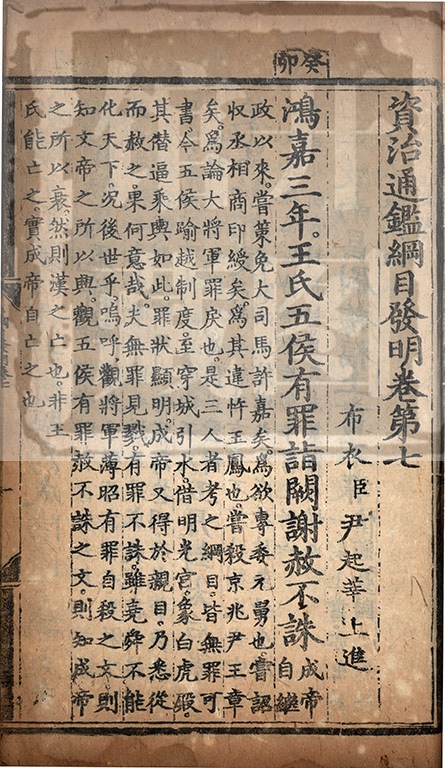 資治通鑑綱目發明卷第七
布衣臣尹起莘上進
癸卯
鴻嘉三年。王氏五侯有罪詣闕謝赦不誅
成帝
自繼
政以來。嘗策免大司馬許嘉矣。爲欲專委元舅也。嘗詔
收丞相商印綬矣。爲其違忤王鳳也。嘗殺京兆尹王章
矣。爲論大將軍罪戾也。是三人者考之綱目。皆無罪可
書。今五侯踰越制度。至穿城引水。僭明光宮。象白虎殿。
其僭逼乘輿如此。罪狀顯明。成帝又得於親目。乃悉從
而赦之。果何意哉。夫無罪見戮。有罪不誅。雖堯舜不能
化天下。況後世乎。嗚呼。觀將軍薄昭有罪自殺之文。則
知文帝之所以興。觀五侯有罪赦不誅之文。則知成帝
之所以衰。然則漢之亡也。非王
氏能亡之。實成帝自亡之也